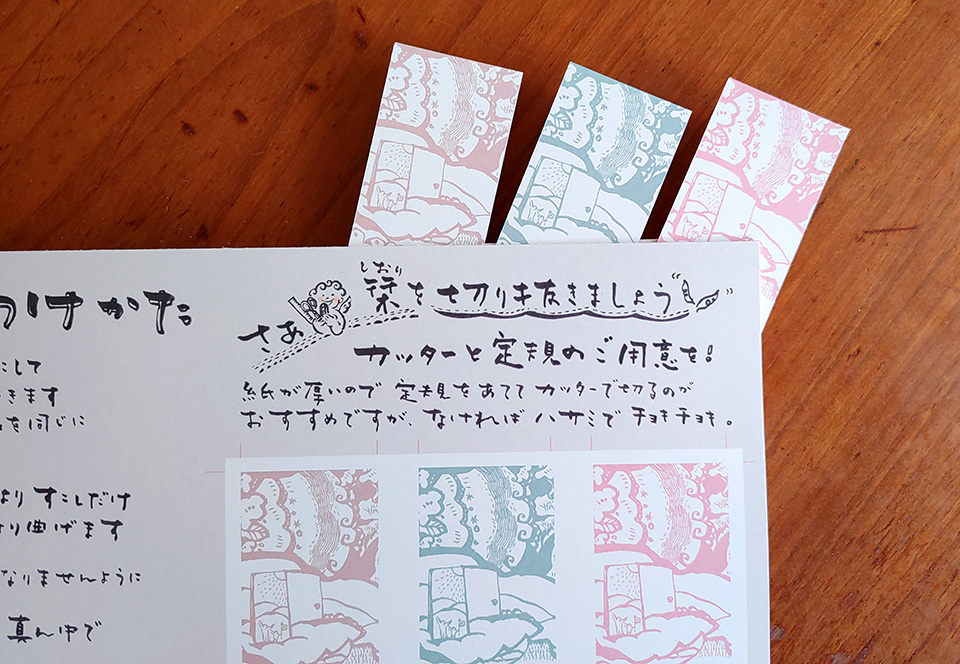 つけかた
にして
きます
を同じに
よりすこしだけ
り曲げます
なりませんように
真ん中で
しおり
さあ 栞を切り抜きましょう
カッターと定規のご用意を!
紙が厚いので 定規をあてて カッターで切るのが
おすすめですが、なければ ハサミで チョキチョキ。